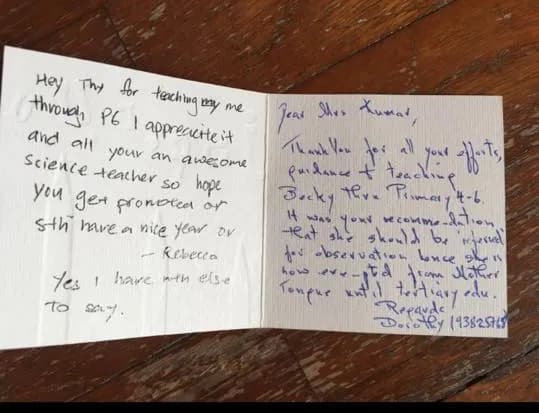 Hey Thx for teaching me
through P6 I appreciate it
and all your an awesome
science teacher so hope
you get promoted or
sth have a nice year or
- Rebecca
Yes I have nth else
To say.
Dear Mrs Kumar,
Thank You for all your efforts,
guidance & teaching
Becky thru Primary 4-6.
It was your recommendation
that she should be referred
for observation hence she is
now exempted from Mother
Tongue until tertiary edu.
Regards
Dorothy